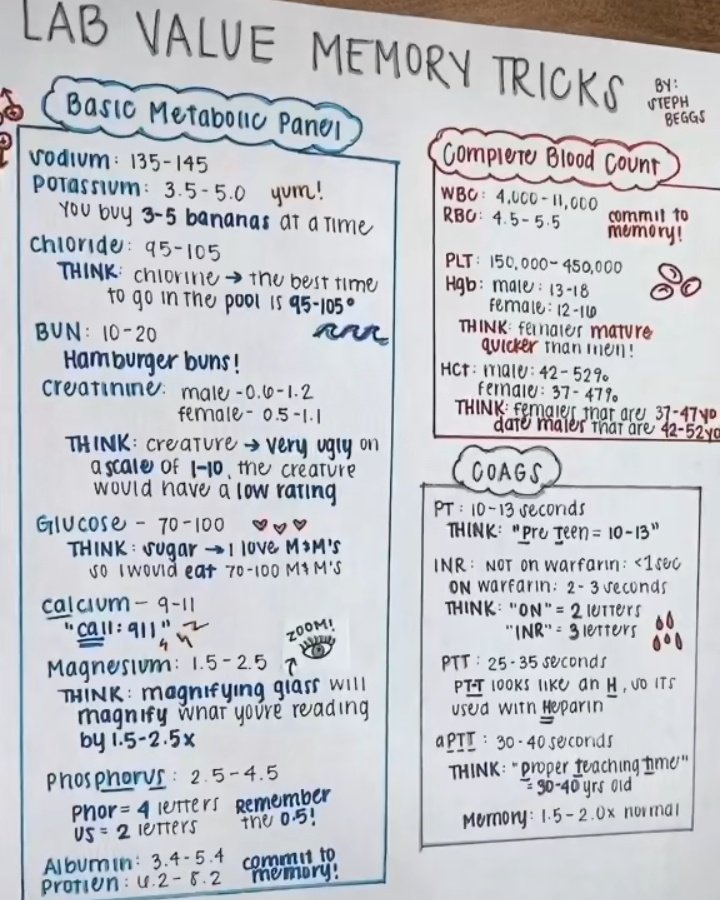 LAB VALUE MEMORY TRICKS
BY:
STEPH
BEGGS
Basic Metabolic Panel
Sodium: 135-145
Potassium: 3.5-5.0 yum!
You buy 3-5 bananas at a time
Chloride: 95-105
THINK: chlorine → the best time
to go in the pool is 95-105°
BUN: 10-20
Hamburger buns!
Creatinine: male -0.6-1.2
female- 0.5-1.1
THINK: creature → very ugly on
a scale of 1-10, the creature
would have a low rating
Glucose - 70-100
THINK: sugar → I love M&M's
so I would eat 70-100 M&M's
Calcium - 9-11
"call: 911"
ZOOM!
Magnesium: 1.5-2.5
THINK: magnifying glass will
magnify what youre reading
by 1.5-2.5x
Phosphorus: 2.5-4.5
Phor = 4 letters Remember
us = 2 letters the 0.5!
Albumin: 3.4-5.4 commit to
Protien: 6.2-8.2 memory!
Complete Blood Count
WBC: 4,000-11,000
RBC: 4.5-5.5 commit to
memory!
PLT: 150,000-450,000
Hgb: male: 13-18
female: 12-16
THINK: females mature
quicker than men!
HCT: male: 42-52%
female: 37-47%
THINK: females that are 37-47yo
date males that are 42-52yo
COAGS
PT: 10-13 seconds
THINK: "Pre Teen = 10-13"
INR: NOT on warfarin: <1sec
ON warfarin: 2-3 seconds
THINK: "ON" = 2 letters
"INR" = 3 letters
PTT: 25-35 seconds
PTT looks like an H, so its
used with Heparin
aPTT: 30-40 seconds
THINK: "proper teaching time"
= 30-40 yrs old
Memory: 1.5-2.0x normal